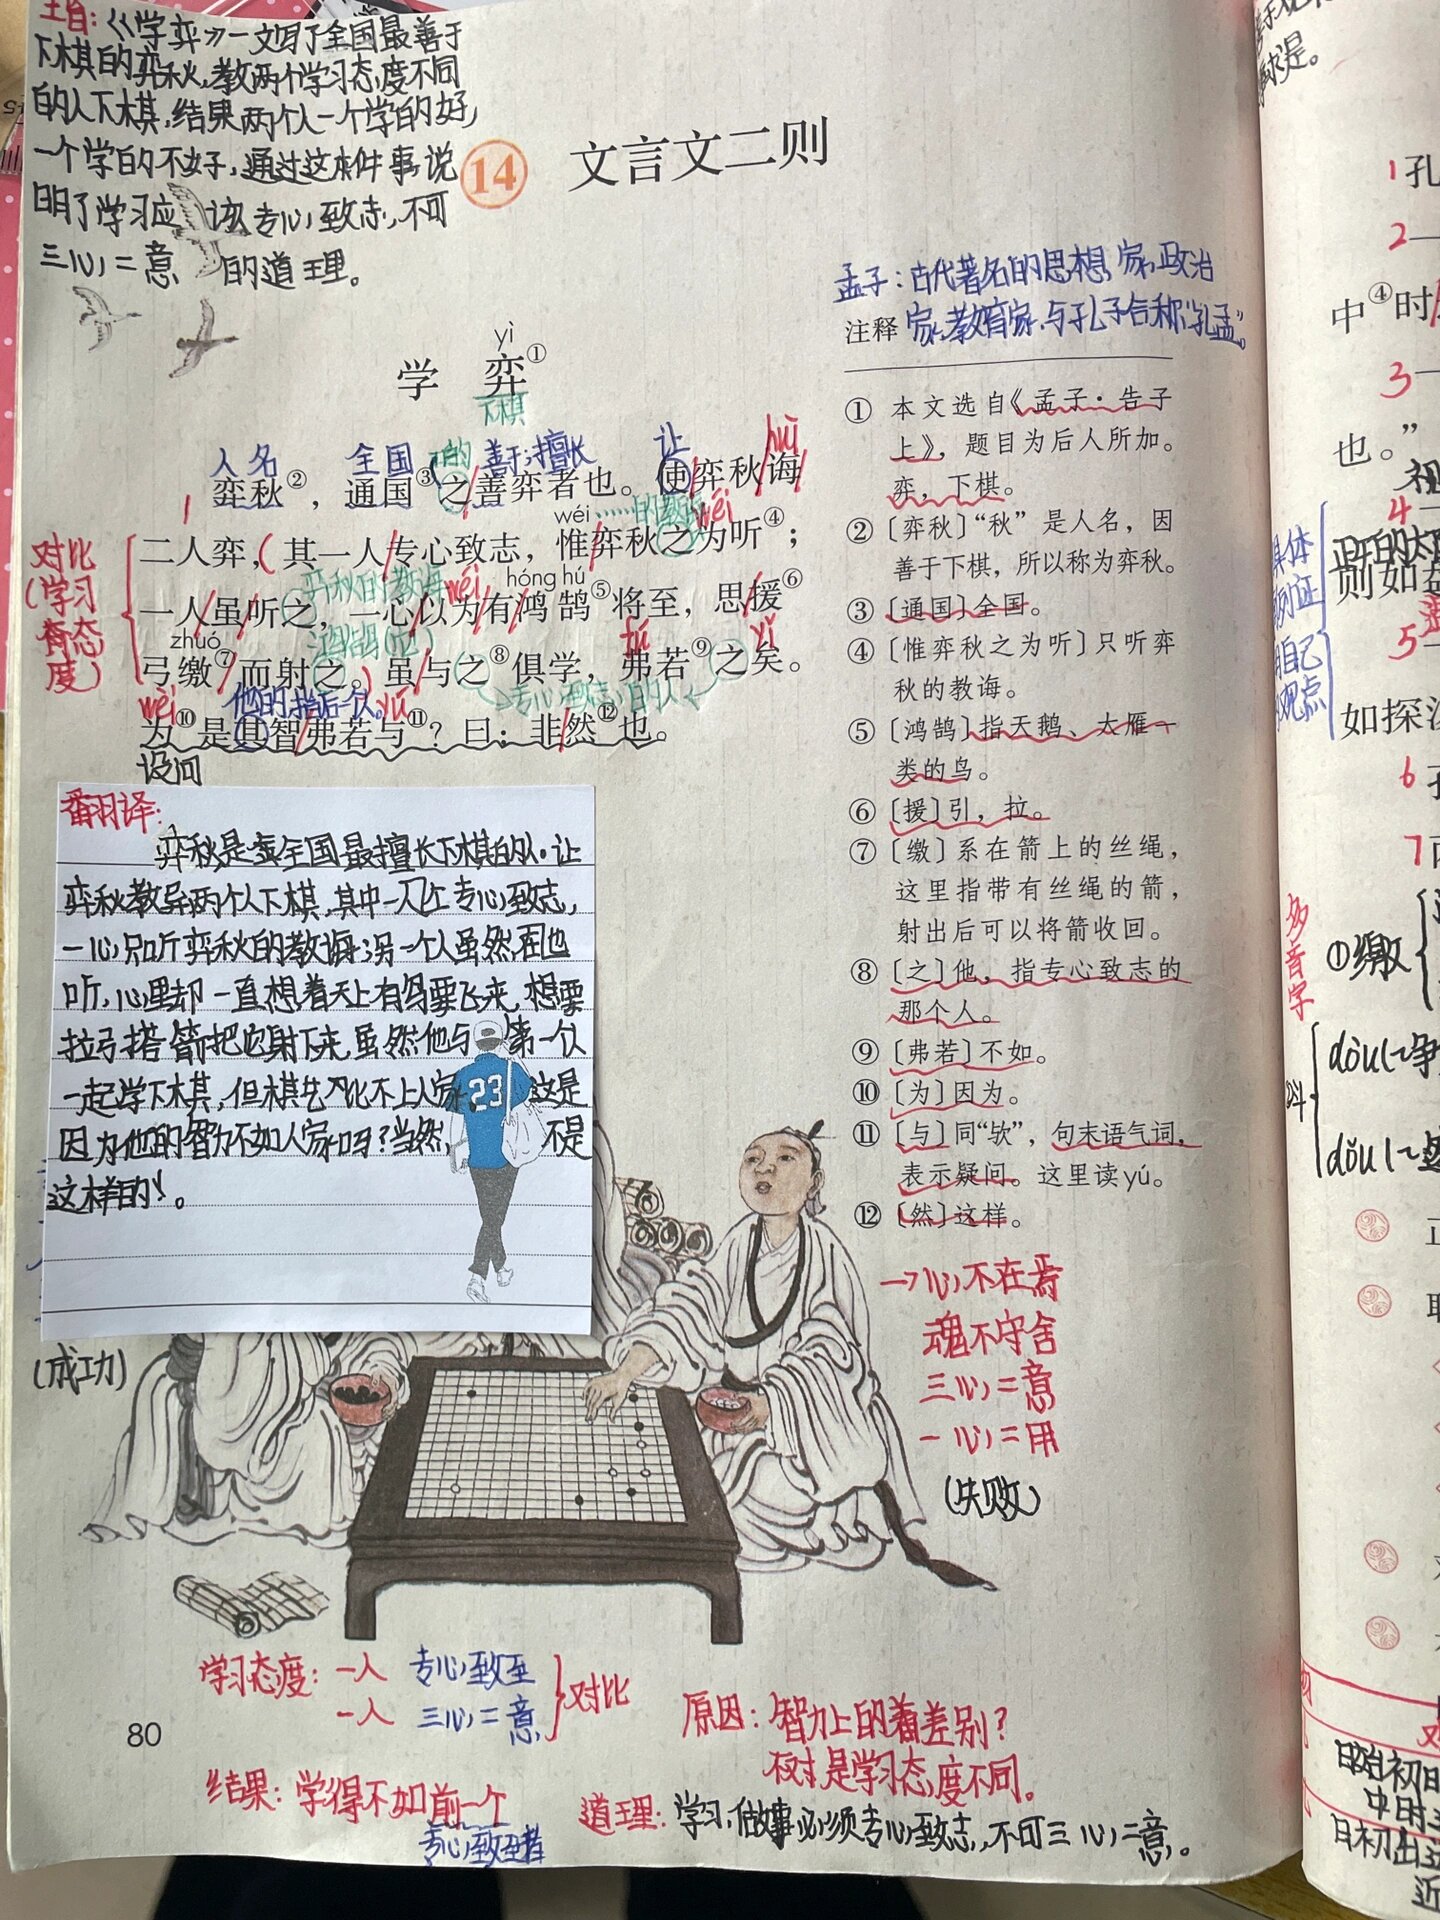 主旨:《学弈》一文写了全国最善于
下棋的弈秋,教两个学习态度不同
的人下棋,结果两个人一个学的好,
一个学的不好,通过这件事说
明了学习应该专心致志,不可
三心二意的道理。
14 文言文二则
yì
学 弈①
下棋
人名 全国 的 善于;擅长 让 huì
弈秋②,通国③之善弈者也。使弈秋诲
wéi ……的教诲 wéi
二人弈,(其一人专心致志,惟弈秋之为听④;
弈秋的教诲 wéi hóng hú
一人虽听之,一心以为有鸿鹄⑤将至,思援⑥
zhuó 鸿鹄 tú yǐ
弓缴⑦而射之。)虽与之⑧俱学,弗若⑨之矣。
专心致志的人
wèi 他的,指后一个人。 yú
为⑩是其智弗若与⑪?曰:非然⑫也。
设问
对比
(学习
态
度)
翻译:
弈秋是全国最擅长下棋的人。让
弈秋教导两个人下棋,其中一人专心致志,
一心只听弈秋的教诲;另一个人虽然也
听,心里却一直想着天上有鸟要飞来,想要
拉弓搭箭把它射下来。虽然他与第一个人
一起学下棋,但棋艺比不上人家。这是
因为他的智力不如人家吗?当然不是
这样的!。
23
(成功)
孟子:古代著名的思想家,政治
家,教育家,与孔子合称“孔孟”。
注释
① 本文选自《孟子·告子
上》,题目为后人所加。
弈,下棋。
② 〔弈秋〕“秋”是人名,因
善于下棋,所以称为弈秋。
③ 〔通国〕全国。
④ 〔惟弈秋之为听〕只听弈
秋的教诲。
⑤ 〔鸿鹄〕指天鹅、大雁一
类的鸟。
⑥ 〔援〕引,拉。
⑦ 〔缴〕系在箭上的丝绳,
这里指带有丝绳的箭,
射出后可以将箭收回。
⑧ 〔之〕他,指专心致志的
那个人。
⑨ 〔弗若〕不如。
⑩ 〔为〕因为。
⑪ 〔与〕同“欤”,句末语气词,
表示疑问。这里读yú。
⑫ 〔然〕这样。
→心不在焉
魂不守舍
三心二意
一心二用
(失败)
学习态度:一人 专心致至
一人 三心二意
对比
原因:智力上的差别?
不对 是学习态度不同。
结果:学得不如前一个
专心致至者
道理:学习,做事必须专心致志,不可三心二意。
80
求是。
1 孔
2
中④时
3
也。”
4
则如
5
如探
6
7
具体
例证
自己
观点
多音字
①缴
dòu
dǒu
中时
日初出
近